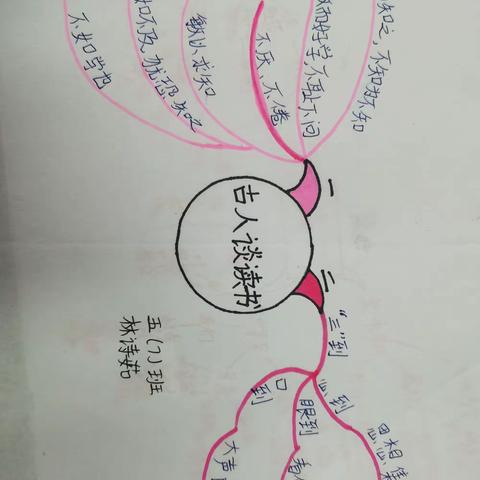 古人谈读书
一
知之，不知为不知
而好学，不耻下问
不厌、不倦
敏以求知
如不及，犹恐失之
不如学也
二
“三”到
心到
思想、集
眼到
看
口到
大声
五（7）班
林诗茹